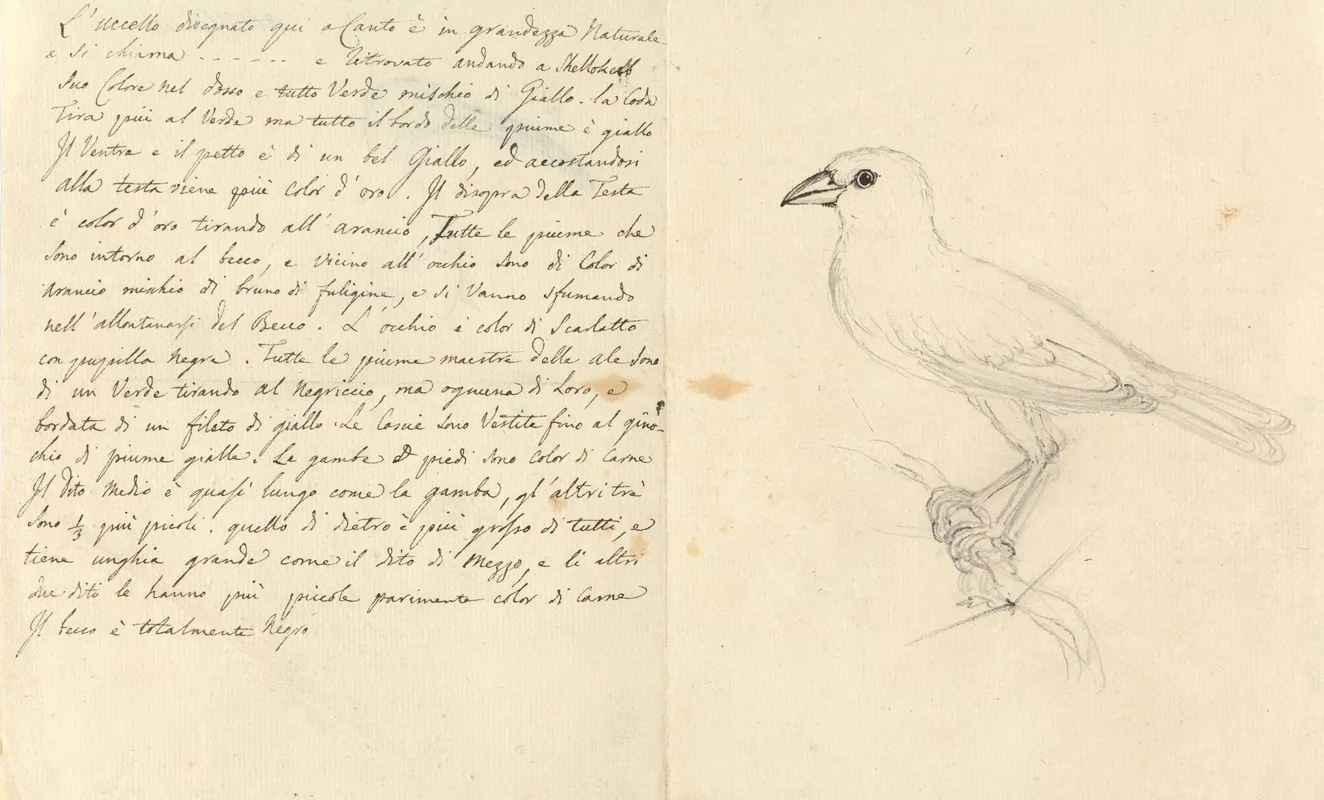 L'uccello disegnato qui a Canto è in grandezza Naturale
e si chiama - - - - - - e ritrovato andando a
Suo Colore nel dosso e tutto Verde mischio di Giallo. la Coda
Tira più al Verde ma tutto il bordo delle piume è giallo
Il Ventra e il petto è di un bel Giallo, ed accostandosi
alla testa viene più color d'oro. Il disopra della Testa
è color d'oro tirando all'arancio, Tutte le piume che
sono intorno al becco, e vicino all'occhio sono di Color di
arancio mischio di bruno di fuligine, e si Vanno sfumando
nell'allontanarsi del Becco. L'occhio è color di Scarlatto
con pupilla Negra. Tutte le piume maestre delle ale sono
di un Verde tirando al Negriccio, ma ognuna di Loro, e
bordata di un fileto di giallo. Le Coscie sono Vestite fino al gino-
chio di piume gialle. Le gambe e piedi sono Color di Carne
Il Dito Medio è quasi lungo come la gamba, gl'altri trè
sono 1/3 più picoli. quello di dietro è più grosso di tutti, e
tiene unghia grande come il dito di Mezzo, e li altri
due diti le hanno più piccole parimente color di Carne
Il becco è totalmente Negro